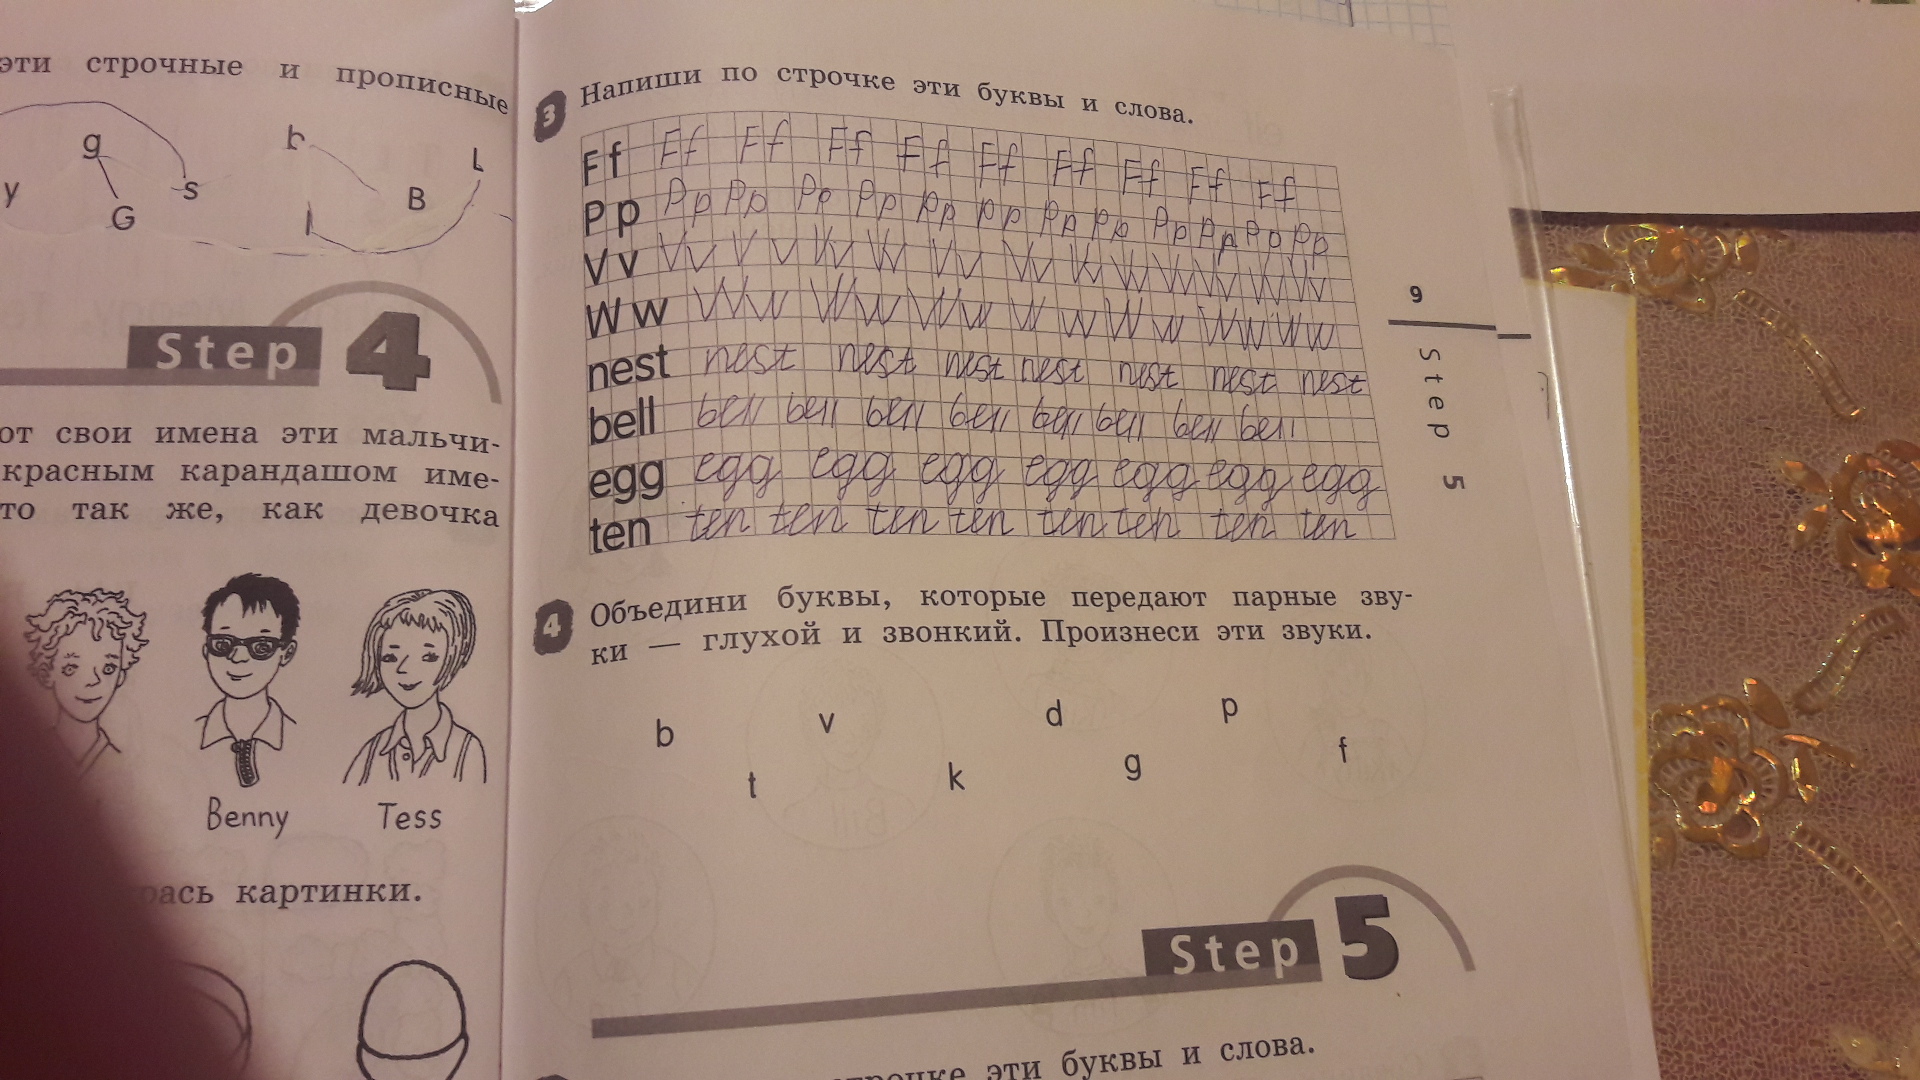 эти строчные и прописные
g h L
y G s l B
Step 4
от свои имена эти мальчи-
красным карандашом име-
то так же, как девочка
Benny Tess
картинки.
3 Напиши по строчке эти буквы и слова.
F f Ff Ff Ff Ff Ff Ff Ff Ff Ff
P p Pp Pp Pp Pp Pp Pp Pp Pp Pp Pp Pp Pp
V v Vv Vv Vv Vv Vv Vv Vv Vv Vv Vv Vv Vv
W w Ww Ww Ww Ww Ww Ww Ww
nest nest nest nest nest nest nest nest
bell bell bell bell bell bell bell bell bell
egg egg egg egg egg egg egg egg
ten ten ten ten ten ten ten ten ten
4 Объедини буквы, которые передают парные зву-
ки — глухой и звонкий. Произнеси эти звуки.
b v d p
t k g f
Step 5
строчке эти буквы и слова.
9
Step 5